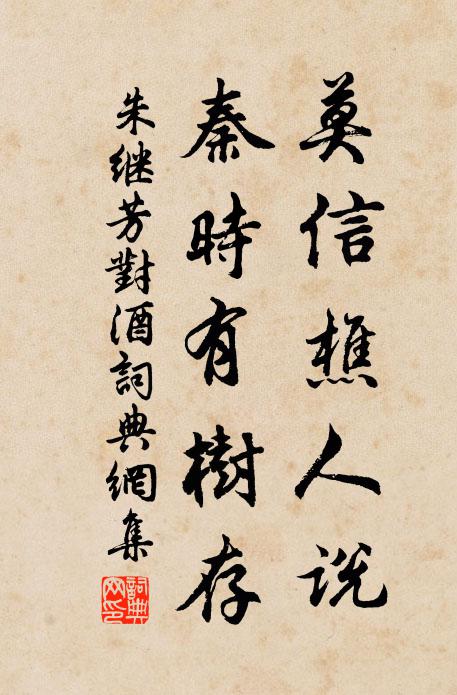 莫信樵人説
秦時有樹存
朱继芳對酒詞典網集
詞典网印